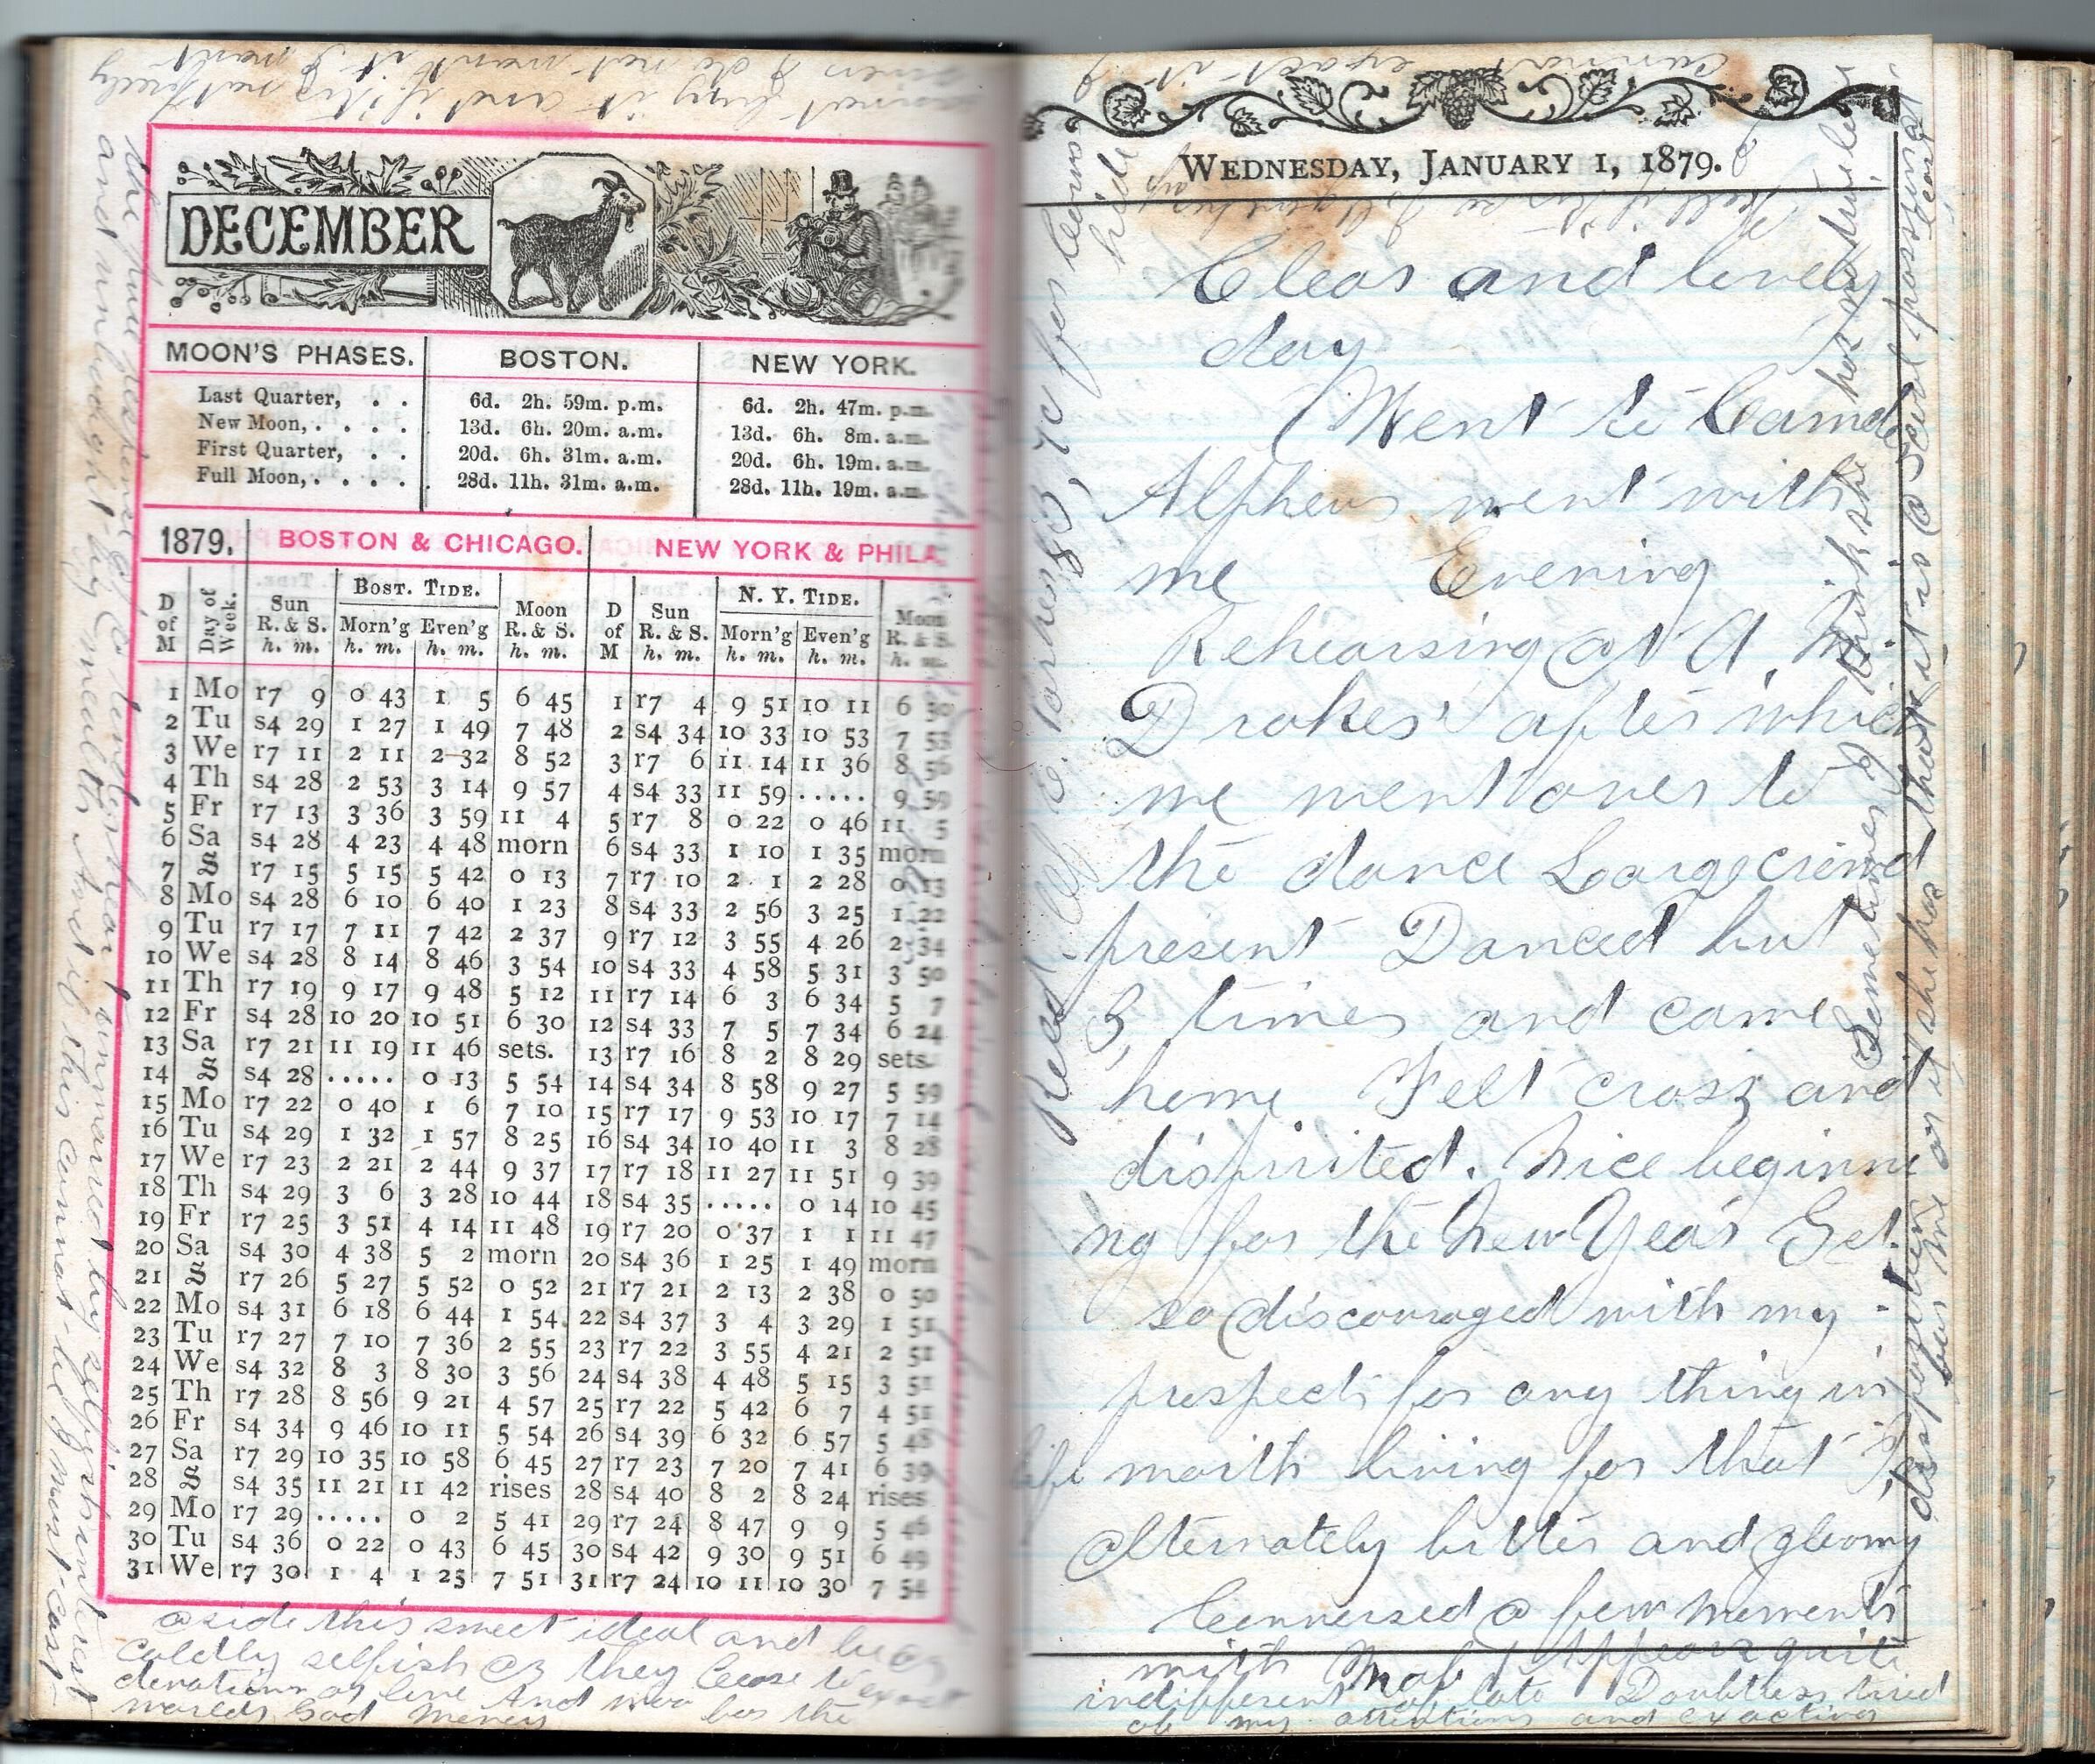 DECEMBER
MOON'S PHASES. BOSTON. NEW YORK.
Last Quarter, . . 6d. 2h. 59m. p.m. 6d. 2h. 47m. p.m.
New Moon, . . . . 13d. 6h. 20m. a.m. 13d. 6h. 8m. a.m.
First Quarter, . . 20d. 6h. 31m. a.m. 20d. 6h. 19m. a.m.
Full Moon, . . . . 28d. 11h. 31m. a.m. 28d. 11h. 19m. a.m.
1879. BOSTON & CHICAGO. NEW YORK & PHILA
D of M Day of Week. Sun R. & S. h. m. BOST. TIDE. Morn'g h. m. Even'g h. m. Moon R. & S. h. m. D of M Sun R. & S. h. m. N. Y. TIDE. Morn'g h. m. Even'g h. m. Moon R. & S. h. m.
1 Mo r7 9 0 43 1 5 6 45 1 r7 4 9 51 10 11 6 50
2 Tu s4 29 1 27 1 49 7 48 2 s4 34 10 33 10 53 7 53
3 We r7 11 2 11 2 32 8 52 3 r7 6 11 14 11 36 8 56
4 Th s4 28 2 53 3 14 9 57 4 s4 33 11 59 ..... 9 59
5 Fr r7 13 3 36 3 59 11 4 5 r7 8 0 22 0 46 11 5
6 Sa s4 28 4 23 4 48 morn 6 s4 33 1 10 1 35 morn
7 S r7 15 5 15 5 42 0 13 7 r7 10 2 1 2 28 0 13
8 Mo s4 28 6 10 6 40 1 23 8 s4 33 2 56 3 25 1 22
9 Tu r7 17 7 11 7 42 2 37 9 r7 12 3 55 4 26 2 34
10 We s4 28 8 14 8 46 3 54 10 s4 33 4 58 5 31 3 50
11 Th r7 19 9 17 9 48 5 12 11 r7 14 6 3 6 34 5 7
12 Fr s4 28 10 20 10 51 6 30 12 s4 33 7 5 7 34 6 24
13 Sa r7 21 11 19 11 46 sets. 13 r7 16 8 2 8 29 sets.
14 S s4 28 ..... 0 13 5 54 14 s4 34 8 58 9 27 5 59
15 Mo r7 22 0 40 1 6 7 10 15 r7 17 9 53 10 17 7 14
16 Tu s4 29 1 32 1 57 8 25 16 s4 34 10 40 11 3 8 28
17 We r7 23 2 21 2 44 9 37 17 r7 18 11 27 11 51 9 39
18 Th s4 29 3 6 3 28 10 44 18 s4 35 ..... 0 14 10 45
19 Fr r7 25 3 51 4 14 11 48 19 r7 20 0 37 1 1 11 47
20 Sa s4 30 4 38 5 2 morn 20 s4 36 1 25 1 49 morn
21 S r7 26 5 27 5 52 0 52 21 r7 21 2 13 2 38 0 50
22 Mo s4 31 6 18 6 44 1 54 22 s4 37 3 4 3 29 1 51
23 Tu r7 27 7 10 7 36 2 55 23 r7 22 3 55 4 21 2 51
24 We s4 32 8 3 8 30 3 56 24 s4 38 4 48 5 15 3 51
25 Th r7 28 8 56 9 21 4 57 25 r7 22 5 42 6 7 4 51
26 Fr s4 34 9 46 10 11 5 54 26 s4 39 6 32 6 57 5 48
27 Sa r7 29 10 35 10 58 6 45 27 r7 23 7 20 7 41 6 39
28 S s4 35 11 21 11 42 rises 28 s4 40 8 2 8 24 rises
29 Mo r7 29 ..... 0 2 5 41 29 r7 24 8 47 9 9 5 46
30 Tu s4 36 0 22 0 43 6 45 30 s4 42 9 30 9 51 6 49
31 We r7 30 1 4 1 25 7 51 31 r7 24 10 11 10 30 7 54
aside this sweet ideal and be as
coldly selfish as they cease to expect
devotion or love And woo but the
worlds God Money
cannot buy it and if it is not freely
given I do not want it I want
and unbought by wealth And if this cannot be I must cast
WEDNESDAY, JANUARY 1, 1879.
Clear and lovely
day
Went to Camd
Alpheus went with
me Evening
Rehearsing at A. M.
Drakes' after which
we went over to
the dance Large crowd
present Danced but
3, times and came
home Felt cross and
dispirited. Nice beginni
ng for the New Year Get
so discouraged with my
prospects for any thing in
life worth living for that I,
alternately bitter and gloomy
Conversed a few moments
with Mab! Appears quite
indifferent of late Doubtless tired
of my attentions and exacting
Sometimes I think she has no true love
for me or if she has that it is a sort of possession
cannot expect it